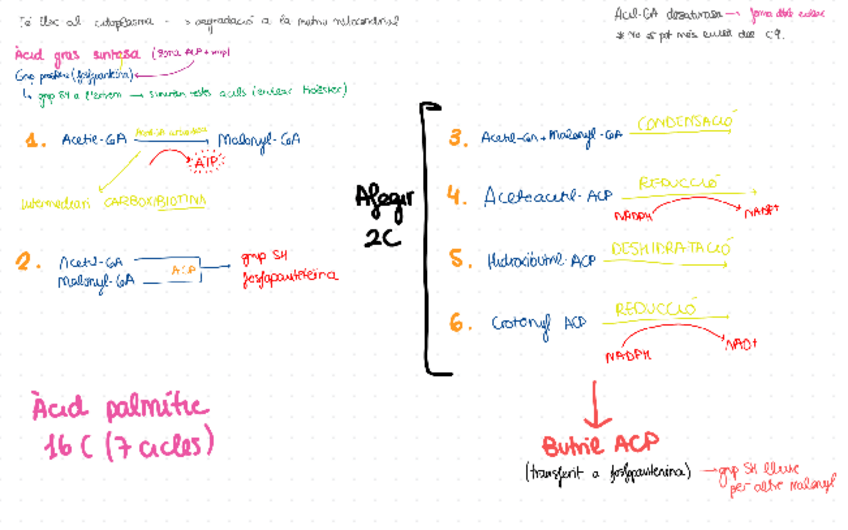 Té lloc al citoplasma -> degradació a la matriu mitocondrial
Àcid gras sintasa (zona ACP +
Grup prostètic (fosfopanteteina)
grup SH a l'extrem → s'uniran tests acils (enllaç tioèster)
1. Acetil-CoA Malonyl-CoA
ATP
Intermediari CARBOXIBIOTINA
2. Acetil-CoA
Malonyl-CoA
ACP
grup SH
fosfopanteteina
Àcid palmític
16 C (7 cicles)
Acil-CoA desaturasa → forma doble enllaç
* No es pot més enllà del C9.
Afegir
2C
3. Acetil-CoA + Malonyl-CoA CONDENSACIÓ
4. Acetoacetil-ACP REDUCCIÓ
NADPH NADP+
5. Hidroxibutiril-ACP DESHIDRATACIÓ
6. Crotonyl ACP REDUCCIÓ
NADPH NAD+
Butiril ACP
(transferit a fosfopanteteina) → grup SH lliure
per altre Malonyl